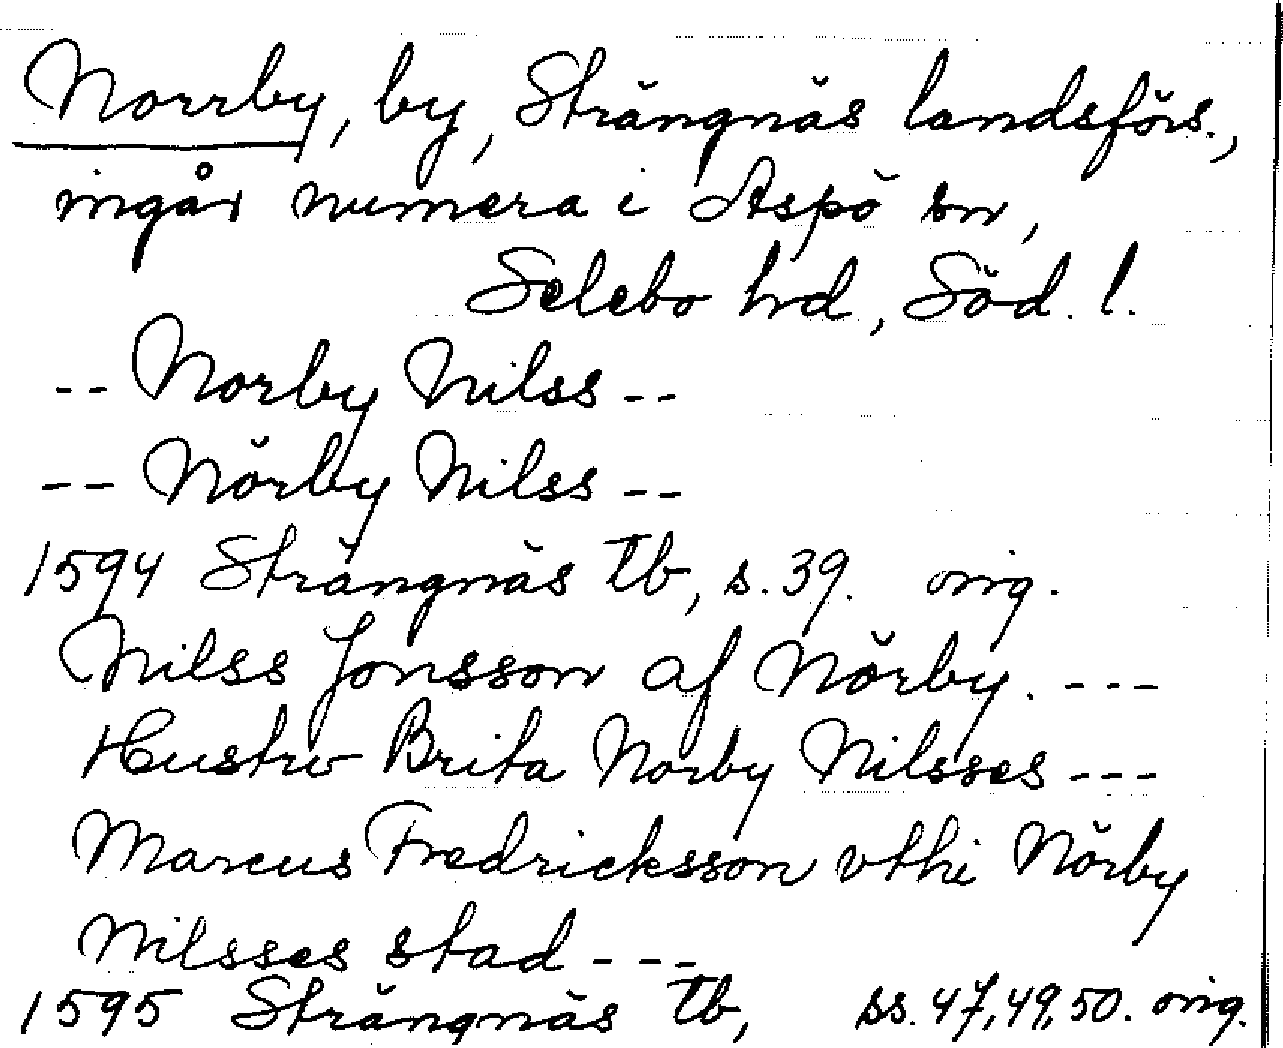 Norrby, by, Strängnäs landsförs.,
ingår numera i Aspö sn,
Selebo hrd, Söd. l.
-- Norby Nilss --
-- Nörby Nilss --
1594 Strängnäs Tb, s. 39. orig.
Nilss Jonsson af Nörby. ---
Hustrv Brita Norby Nilsses ---
Marcus Fredricksson vthi Nörby
Nilsses stad ---
1595 Strängnäs Tb, ss. 47, 49, 50. orig.